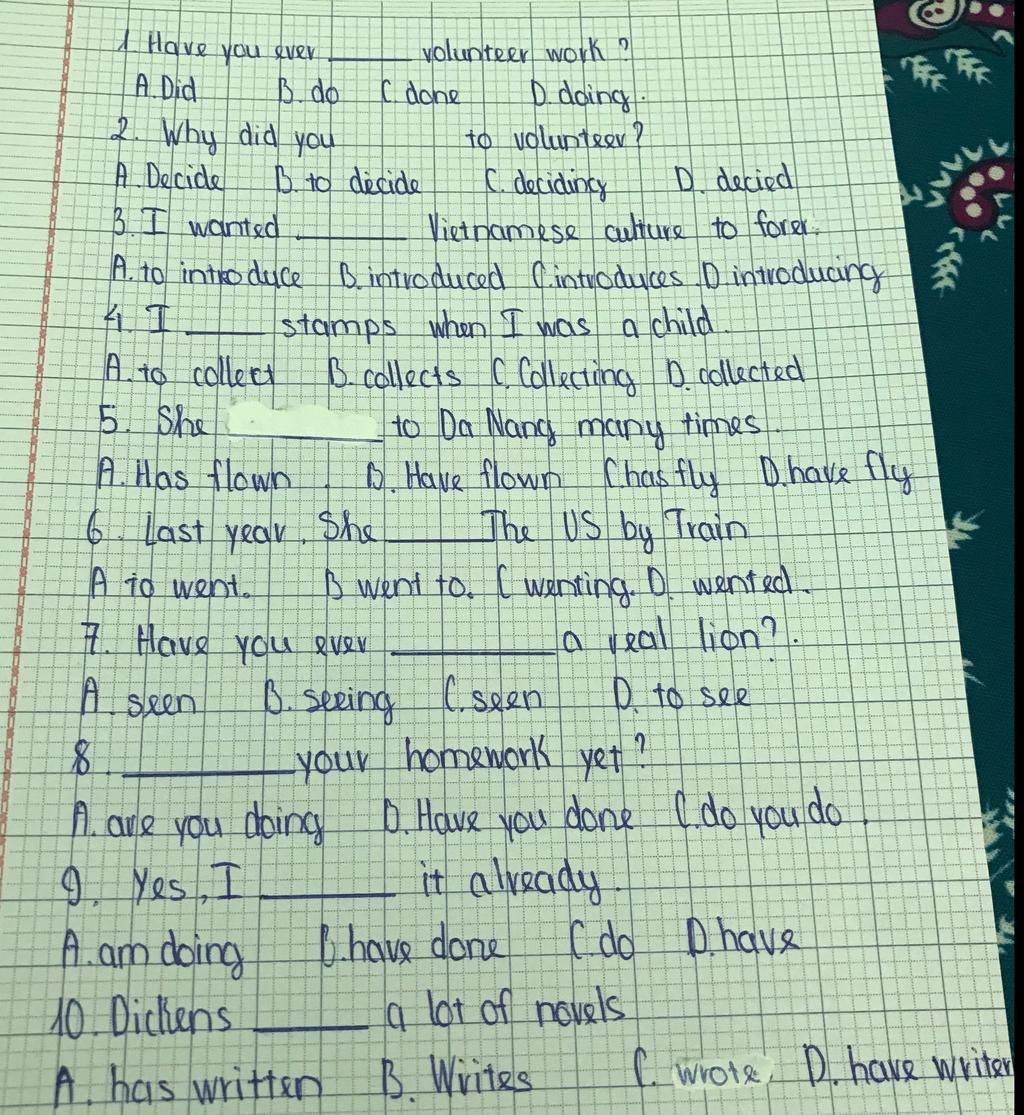 1 Have you ever ______ volunteer work?
A. Did B. do C. done D. doing.
2. Why did you to volunteer?
A. Decide B. to decide C. deciding D. decied
3. I wanted ______ Vietnamese culture to forer.
A. to introduce B. introduced C. introduces D. introducing
4. I ______ stamps when I was a child.
A. to collect B. collects C. Collecting D. collected
5. She ______ to Da Nang many times.
A. Has flown. B. Have flown C has fly D. have fly
6. Last year, She ______ The US by Train
A to went. B went to. C wenting. D. wented.
7. Have you ever ______ a real lion?.
A. seen B. seeing C. seen D. to see
8. ______ your homework yet?
A. are you doing B. Have you done C. do you do.
9. Yes, I ______ it already.
A. am doing B. have done C. do D. have
10. Dickens ______ a lot of novels
A. has written B. Writes C. wrote, D. have writer